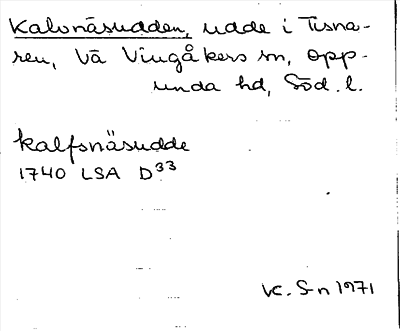 Kalvnäsudden, udde i Tisna-
ren, Vä Vingåkers sn, Opp-
unda hd, Söd. l.
kalfsnäsudde
1740 LSA D³³
VC. S-n 1971